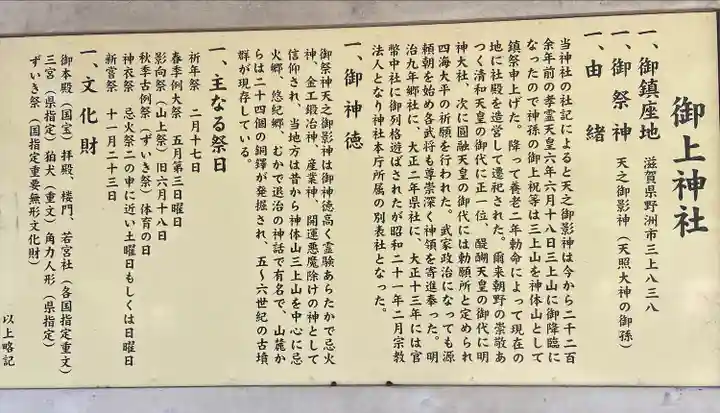 御上神社
一、御鎮座地　滋賀県野洲市三上八三八
一、御祭神　天之御影神（天照大神の御孫）
一、由緒
当神社の社記によると天之御影神は今から二千二百
余年前の孝霊天皇六年六月十八日三上山に御降臨に
なったので神孫の御上祝等は三上山を神体山として
鎮祭申上げた。降って養老二年勅命によって現在の
地に社殿を造営して遷祀された。爾来朝野の崇敬あ
つく清和天皇の御代に正一位、醍醐天皇の御代に明
神大社、次に圓融天皇の御代には勅願所と定められ
四海大平の祈願を行われた。武家政治になっても源
頼朝を始め各武将も尊崇深く神領を寄進奉った。明
治九年郷社に、大正二年県社に、大正十三年には官
幣中社に御列格遊ばされたが昭和二十一年二月宗教
法人となり神社本庁所属の別表社となった。
一、御神徳
御祭神天之御影神は御神徳高く霊験あらたかで忌火
神、金工鍛冶神、産業神、開運悪魔除けの神として
信仰され、当地方は昔から神体山三上山を中心に忌
火郷、悠紀郷、むかで退治の神話で有名で、山麓か
らは二十四個の銅鐸が発掘され、五〜六世紀の古墳
群が現存している。
一、主なる祭日
祈年祭　二月十七日
春季例大祭　五月第三日曜日
影向祭（山上祭）旧六月十八日
秋季古例祭（ずいき祭）体育の日
神衣祭　忌火祭二の申に近い土曜日もしくは日曜日
新嘗祭　十一月二十三日
一、文化財
御本殿（国宝）拝殿、楼門、若宮社（各国指定重文）
三宮（県指定）狛犬（重文）角力人形（県指定）
ずいき祭（国指定重要無形文化財）
以上略記